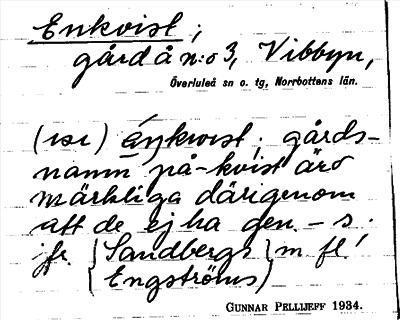 Enkvist ;
gård å n:o 3, Vibbyn,
Överluleå sn o. tg, Norrbottens län.
(ısı) éŋkvıst ; gårds-
namn på -kvist äro
märkliga därigenom
att de ej ha gen. - s.
jfr. {Sandbergs} m fl!
{Engströms)
GUNNAR PELLIJEFF 1934.